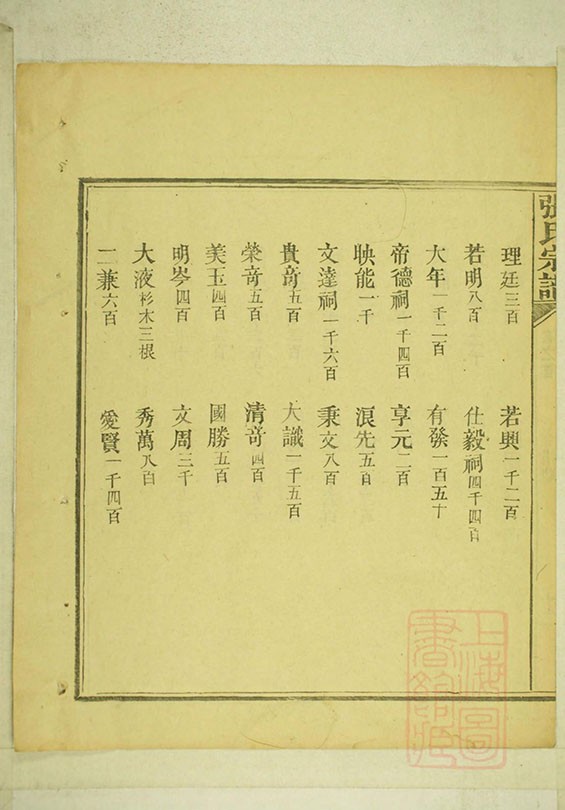 張氏宗譜
理廷三百 若興一千二百
若明八百 仕毅祠四千四百
大年一千二百 有發一百五十
帝德祠一千四百 享元二百
映能一千 浪先五百
文達祠一千六百 秉文八百
貴竒五百 大識一千五百
榮竒五百 清竒四百
美玉四百 國勝五百
明岑四百 文周三千
大液杉木三根 秀萬八百
二兼六百 愛賢一千四百
上海圖書館藏